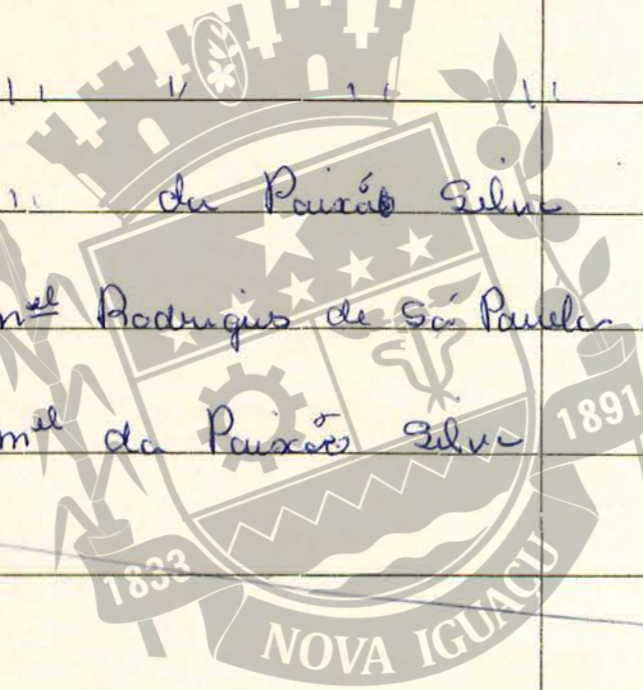 " " " "
" da Paixão Silva
nel Rodrigues de Sá Pauela
mel da Paixão Silva
1833
1891
NOVA IGUAÇU